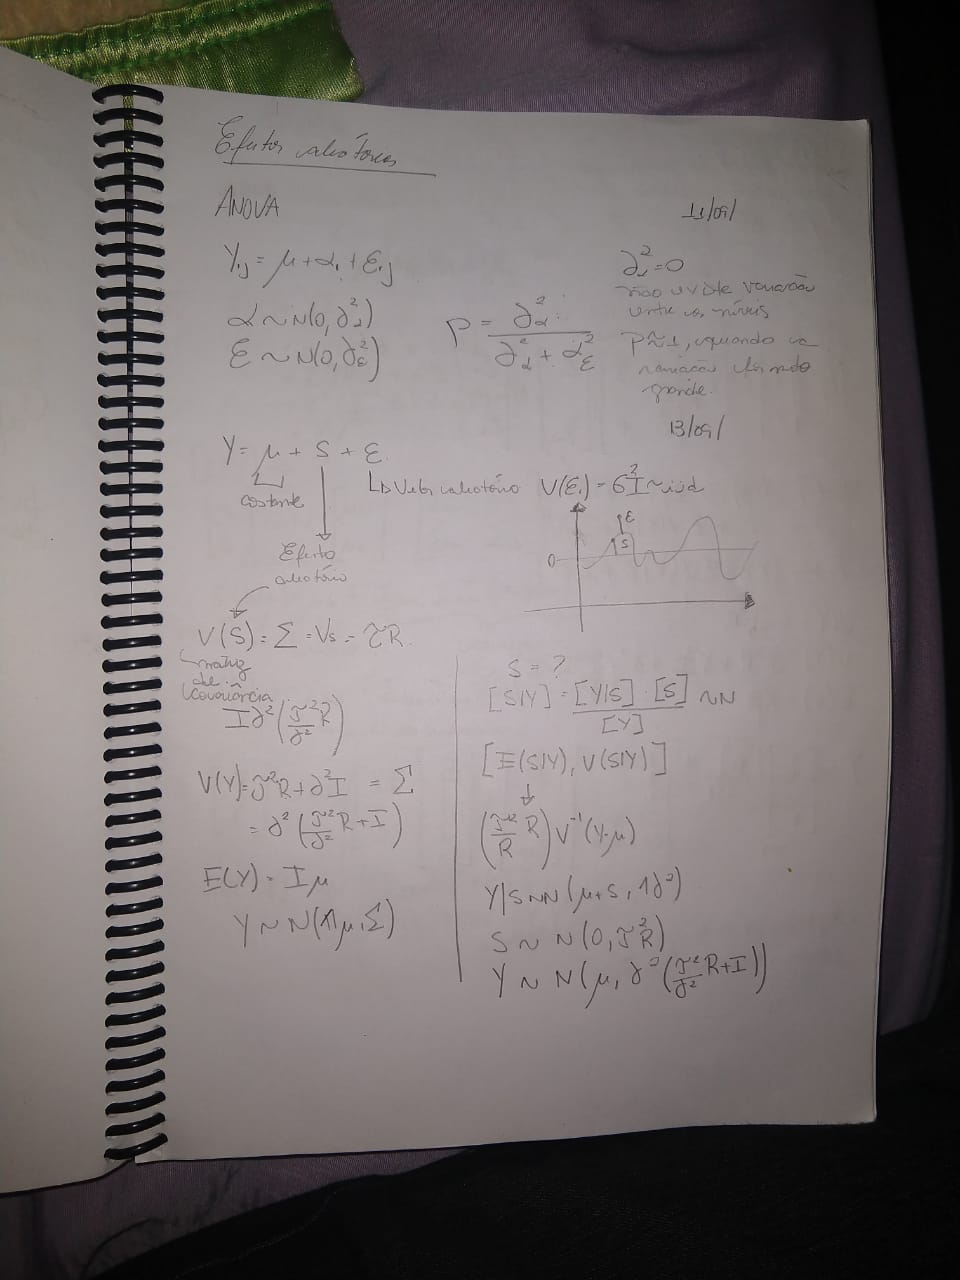 Efeitos aleatórios
ANOVA
11/09/
Yij = μ + αi + εij
α ~ N(0, ∂²α)
ε ~ N(0, ∂²ε)
ρ = ∂²α / ∂²α + ∂²ε
∂²α = 0
não existe variação
entre os níveis
ρ ≈ 1, quando a
variação for muito
grande.
13/09/
Y = μ + S + ε
costante
Efeito
aleatório
↳ Vetor aleatório V(εi) = σ²I ~ iid
ε
S
0
V(S) = Σ = Vs = τR.
matriz
de
covariância
I∂²(τ²/∂² R)
V(Y) = τ²R + ∂²I = Σ
= ∂²(τ²/∂² R + I)
E(Y) = Iμ
Y ~ N(1μ, Σ)
S = ?
[S|Y] = [Y|S] · [S] / [Y] ~ N
[E(S|Y), V(S|Y)]
(τ²/R R) V⁻¹(Y-μ)
Y|S ~ N(μ+S, 1∂²)
S ~ N(0, τ²R)
Y ~ N(μ, ∂²(τ²/∂² R + I))